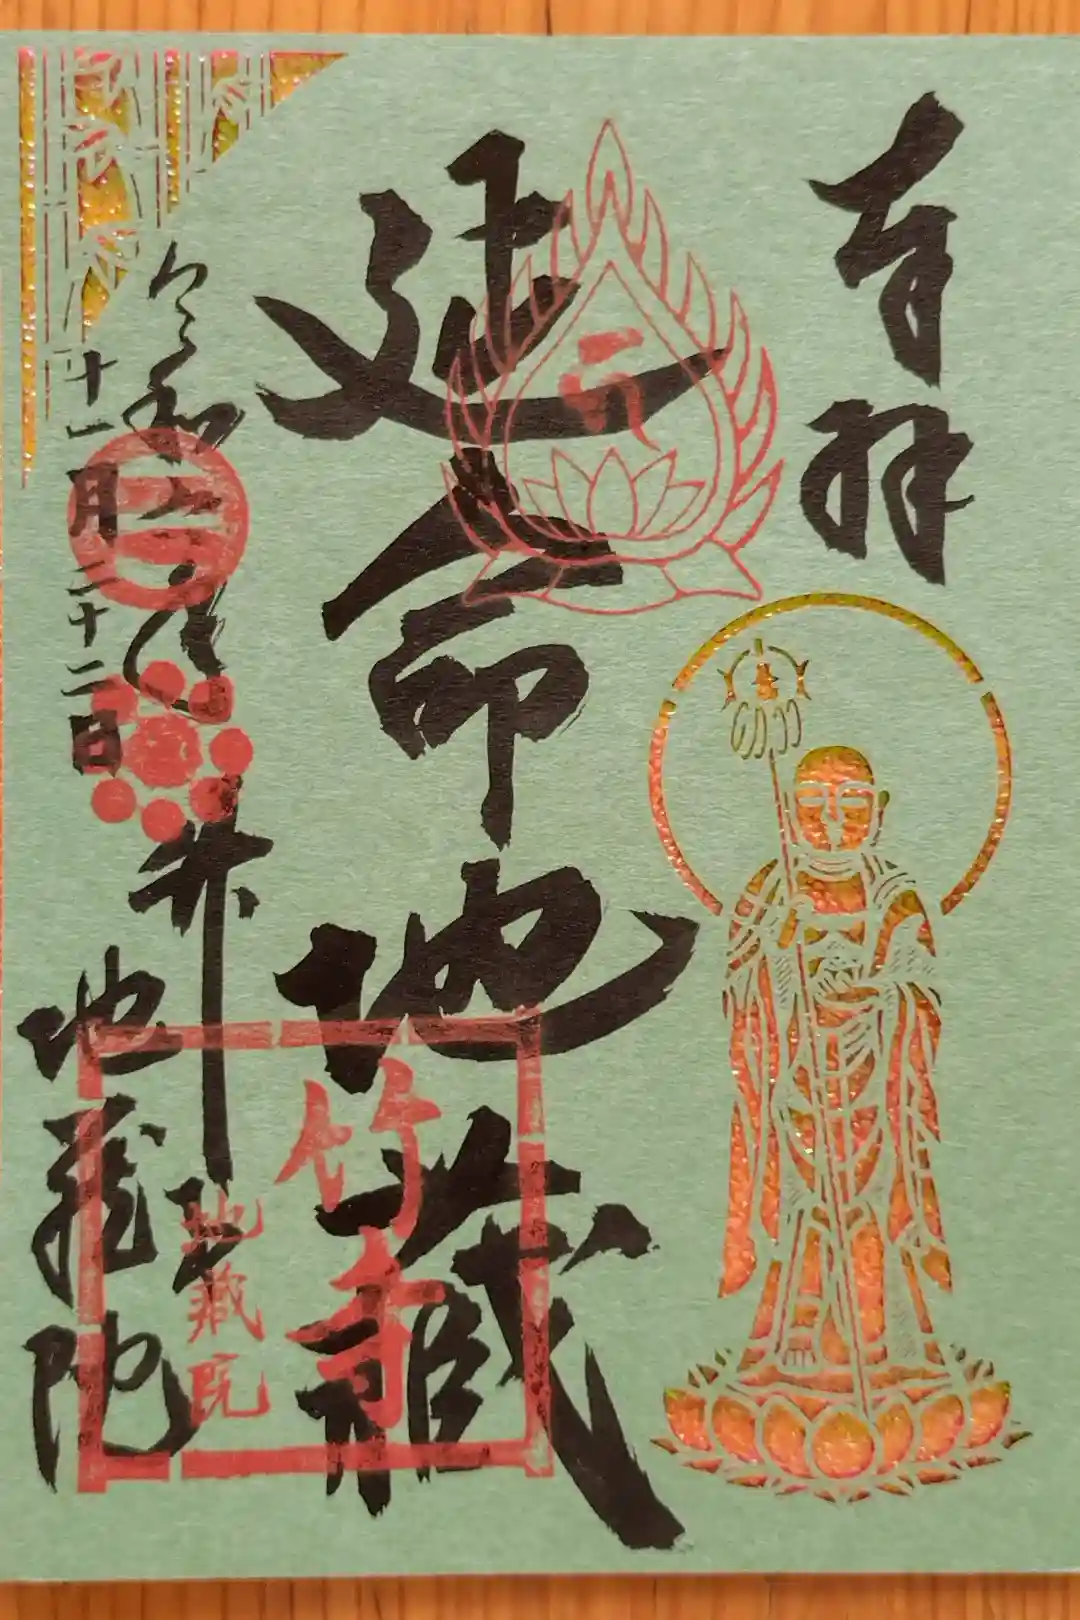 奉拝
延命地蔵
令和六年
十一月二十二日
竹の
地蔵院
竹寺
地蔵院